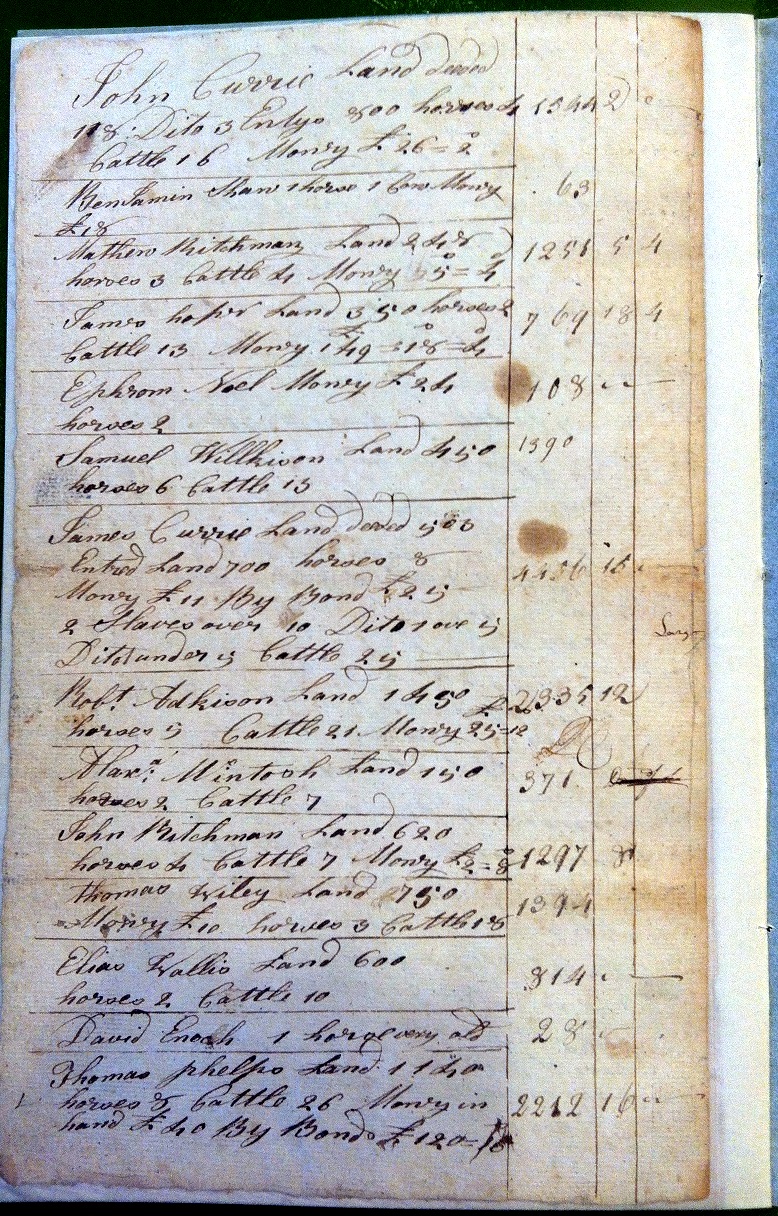 John Currie Land deeded
118: Dito 3 Entys 800 horses 4 1344 2
Cattle 16 Mony £26=2
BenJamin Shaw 1 horse 1 Cow Mony 63
£18
Mathew Ritchman Land 248 1251 5 4
horses 3 Cattle 4 Mony 5=4
James hoper Land 350 horses 2 769 18 4
Cattle 13 Mony £149=18=4
Ephrom Noel Mony £24 108
horses 2
Samuel Willkison Land 450 1390
horses 6 Cattle 13
James Currie Land deeded 503
Entred Land 700 horses 8 4456 15
Mony £11 By Bond £25
2 Slaves over 10 Dito 1 ove 5
Dito 1 under 5 Cattle 25
Robt. Adkison Land 1450 2335 12
horses 5 Cattle 21 Mony £25=12
Alaxr: Mcintosh Land 150 371
horses 2 Cattle 7
John Ritchman Land 620
horses 4 Cattle 7 Mony £2=8 1297 8
Thomas Wiley Land 750 1394
Mony £10 horses 3 Cattle 18
Elias Wallis Land 600 814
horses 2 Cattle 10
David Enoch 1 horse very old 28
Thomas phelps Land 1140
horses 8 Cattle 26 Mony in 2212 16
hand £40 By Bonds £120=16